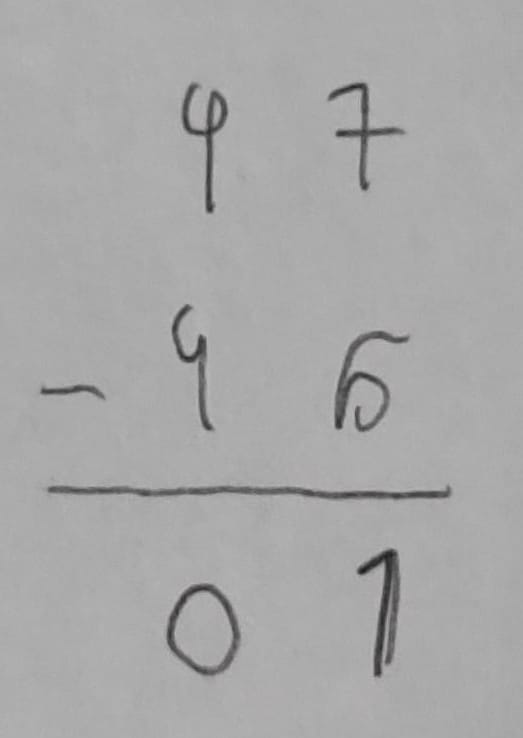 47
- 46
01